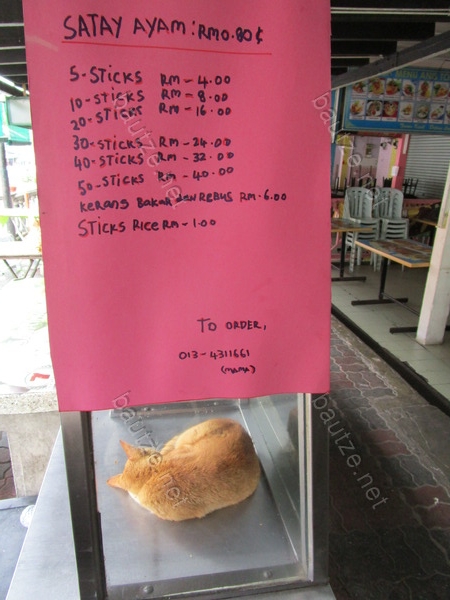 SATAY AYAM : RM0.80¢
5-STICKS RM - 4.00
10-STICKS RM - 8.00
20-STICKS RM - 16.00
30-STICKS RM - 24.00
40-STICKS RM - 32.00
50-STICKS RM - 40.00
KERANG BAKAR DAN REBUS RM - 6.00
STICKS RICE RM - 1.00
TO ORDER,
013-4311661
(MAMA)
MENU AND
bautze.net
bautze.net
bautze.net
bautze.net
bautze.net
bautze.net